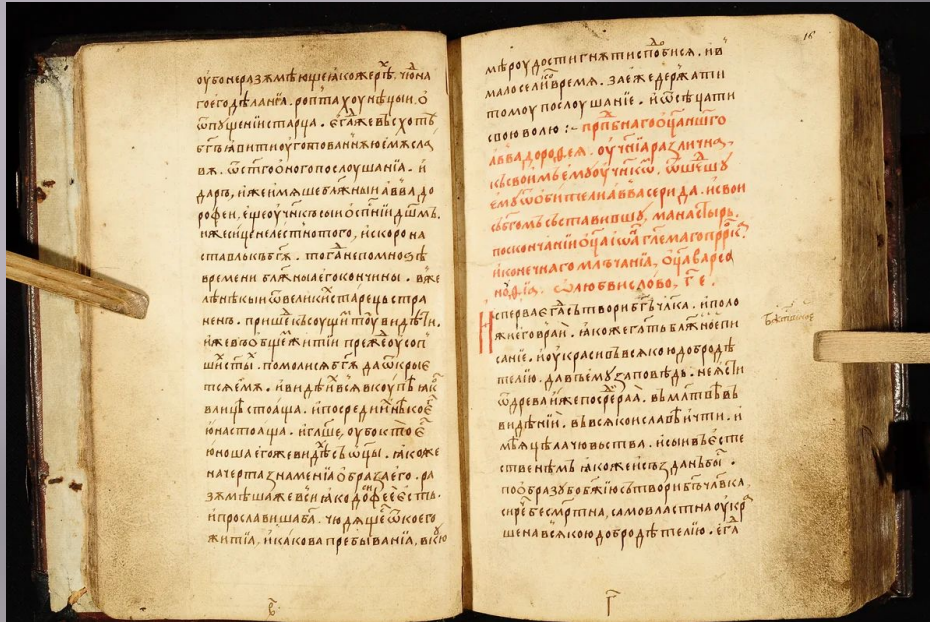 оубо неразꙋмѣюще ꙗкоже рѣⷯ, чюⷣна
гоего дѣланїа. роптахоу нѣцыи. ѽ
ѿпущенїи старца. Єгⷣаже въсхотѣ
бг҃ъ ꙗвити оуготованнꙋю емꙋ слаⷡ
вꙋ. ѿ ст҃гоѻного послоушанїа. и
даръ, иже имѧше бл҃жныи авва до
рофеи, еще оучн҃къ сыи ѻ сп҃нїи дш҃мъ.
иже исцѣлелестнотого, и скоро на
ставлѧ къ бг҃ꙋ. тогⷣа не по мноѕѣ
времени бл҃жныѧ его кончины. вꙋже
лѣнѣкыи ѿ великиⷯ старець стра
ненъ. пришеⷣ къ соущиⷨ тоу видѣти.
иже въ ѻбщеⷨ житїи прежⷣе оусоп
шиⷯ ст҃ы. помолисѧ бг҃ꙋ да ѿкрыє
тсѧ емꙋ. и видѣ иⷯ всѧ вкоупѣ ꙗкѡ
в лицѣ стоаща. и посредѣ иⷯ нѣкоеⷢ
юна стоаща. и гл҃аше, оубо кто єⷭ
юноша егоже видѣⷯ съ ѿцы. ꙗкоже
начерта знаменїа ѻбраза его. ра
зꙋмѣша же вси ꙗко дософеѐ єсть.
и прославиша ба҃. чюдѧщесѧ ѿ коего
житїа, и какова пребыванїа, в кꙋю
мѣроу достигнꙋти сподобисѧ. и въ
мало селико времѧ. за еже держати
томоу послоушанїе. и ѿсѣцати
свою волю :~ прпⷣбнаго оц҃а нш҃го
авва дороѳеѧ. оучнїа различна,
къ своимъ емоу оучн҃кѡⷨ, ѿшеⷣшу
ємꙋ ѿ обители авва серида. и свои
съ бг҃омъ съставившꙋ, манастырь.
по скончанїи оц҃а iѡа҃ гл҃емаго прⷪрⷪк.
и конечнаго млъчанїа, оц҃а варсо
ноуфїа. ѽ любви слово, г҃ е.
Исперва єгⷣа сътвори бг҃ъ чл҃ка. и поло
жи его в раи. ꙗкоже гл҃ть бл҃жⷭное пи
санїе. и оукрасивъ всѧкою добродѣ
телїю. давъ емꙋ заповѣдь. не ꙗсти
ѿ древа иже посреⷣ раа. в млтⷡѣ, въ
видѣнїи. въ всѧкои славѣ и чти. и
мѣѧ цѣла чювьства. и сыи въ єсте
ственѣмъ ꙗкоже и създанъ бы.
по образу бо бж҃їю сътвори бг҃ъ чл҃вка,
сирѣⷱ бесмр҃тна, самовластна оукрⷶ
шена всѧкою добродѣтелїю. єгⷣа
16
в҃
г҃